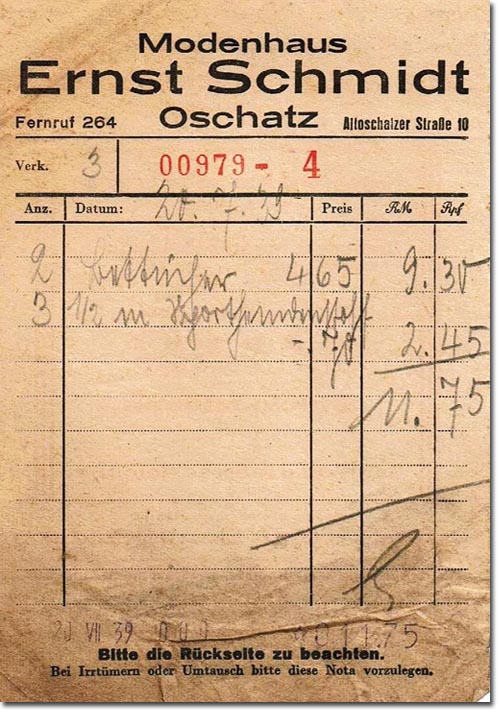 Modenhaus
Ernst Schmidt
Oschatz
Fernruf 264 Altoschatzer Straße 10
Verk. 3 00979 - 4
Anz. Datum: 20. 7. 39 Preis RM Rpf
2 Bettücher 4 65 9. 30
3 1/2 m Sporthemdenstoff
-. 70 2. 45
11. 75
20 VII 39 000 *011.75
Bitte die Rückseite zu beachten.
Bei Irrtümern oder Umtausch bitte diese Nota vorzulegen.